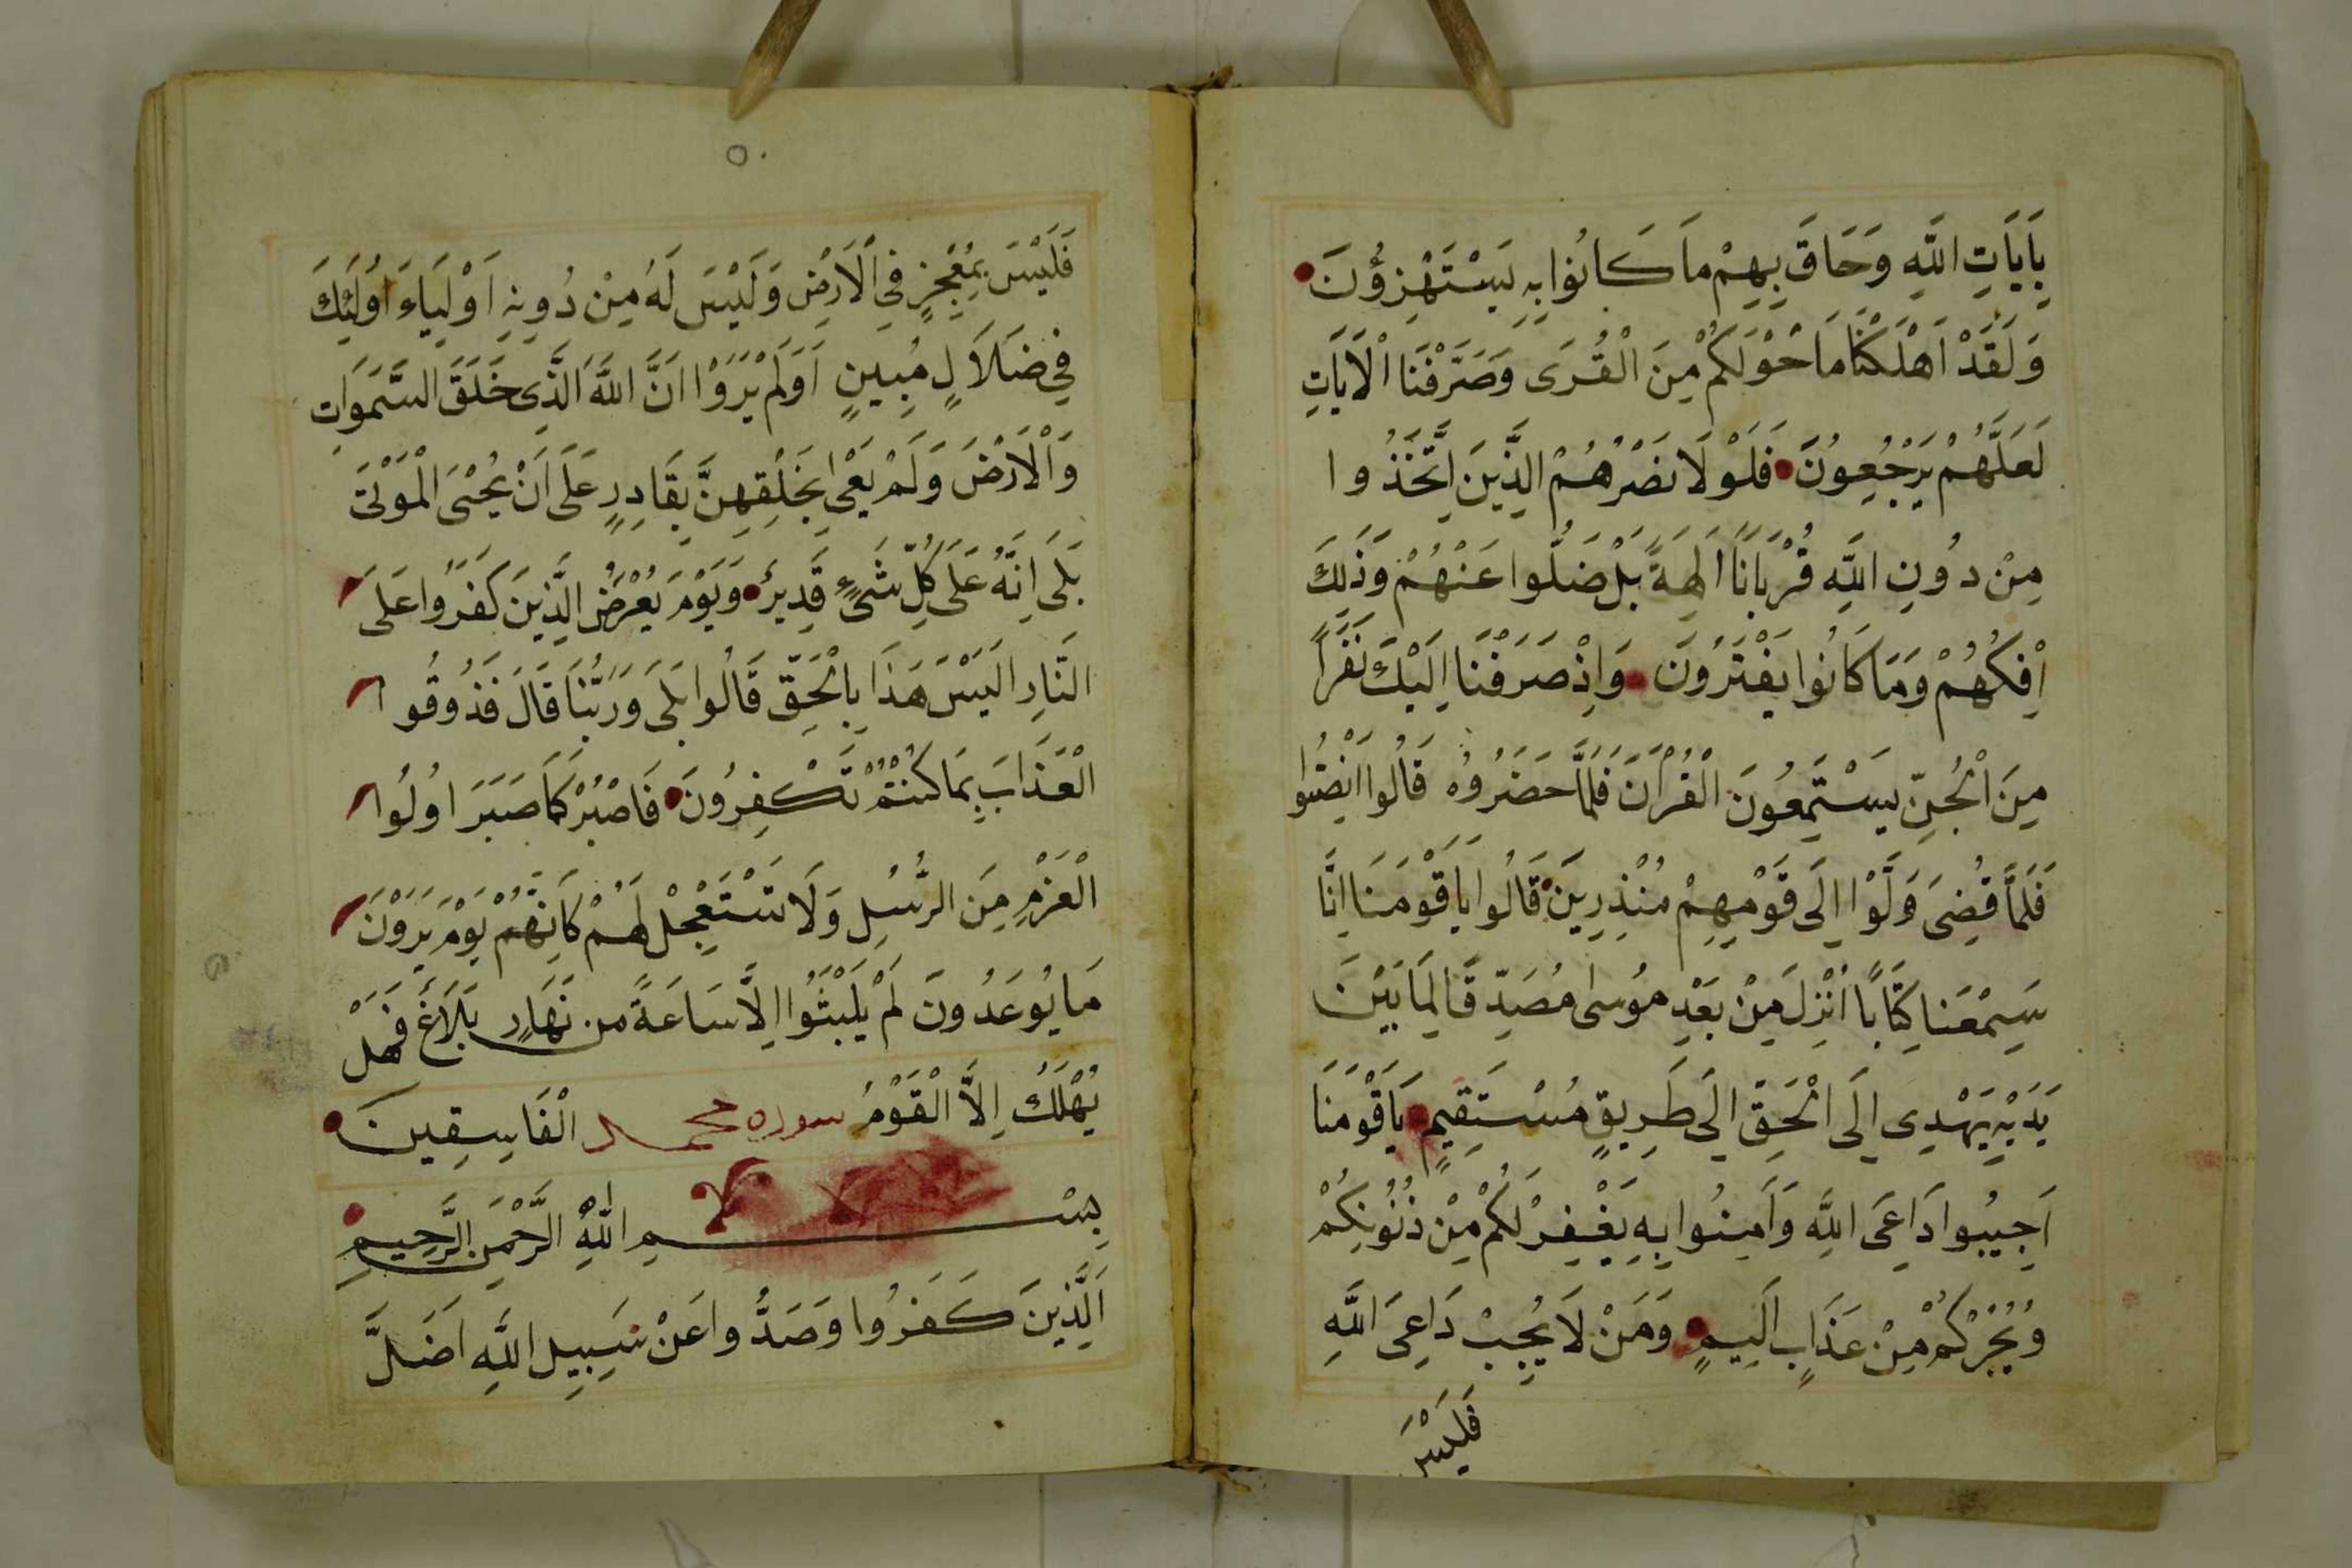 بِاَيَاتِ اللَّهِ وَحَاقَ بِهِمْ مَا كَانُوا بِهِ يَسْتَهْزِؤُنَ
وَلَقَدْ اَهْلَكْنَا مَا حَوْلَكُمْ مِنَ الْقُرَى وَصَرَّفْنَا الْاَيَاتِ
لَعَلَّهُمْ يَرْجِعُونَ فَلَوْلَا نَصَرَهُمُ الَّذِينَ اتَّخَذُوا
مِنْ دُونِ اللَّهِ قُرْبَانًا اَلِهَةً بَلْ ضَلُّوا عَنْهُمْ وَذَلِكَ
اِفْكُهُمْ وَمَا كَانُوا يَفْتَرُونَ وَاِذْ صَرَفْنَا اِلَيْكَ نَفَرًا
مِنَ الْجِنِّ يَسْتَمِعُونَ الْقُرْاَنَ فَلَمَّا حَضَرُوهُ قَالُوا اَنْصِتُوا
فَلَمَّا قُضِىَ وَلَّوْا اِلَى قَوْمِهِمْ مُنْذِرِينَ قَالُوا يَا قَوْمَنَا اِنَّا
سَمِعْنَا كِتَابًا اُنْزِلَ مِنْ بَعْدِ مُوسَى مُصَدِّقًا لِمَا بَيْنَ
يَدَيْهِ يَهْدِى اِلَى الْحَقِّ اِلَى طَرِيقٍ مُسْتَقِيمٍ يَا قَوْمَنَا
اَجِيبُوا دَاعِىَ اللَّهِ وَاَمِنُوا بِهِ يَغْفِرْ لَكُمْ مِنْ ذُنُوبِكُمْ
وَيُجِرْكُمْ مِنْ عَذَابٍ اَلِيمٍ وَمَنْ لَا يُجِبْ دَاعِىَ اللَّهِ
فَلَيْسَ
٥٠
فَلَيْسَ بِمُعْجِزٍ فِى الْاَرْضِ وَلَيْسَ لَهُ مِنْ دُونِهِ اَوْلِيَاءَ اُولَئِكَ
فِى ضَلَالٍ مُبِينٍ اَوَلَمْ يَرَوْا اَنَّ اللَّهَ الَّذِى خَلَقَ السَّمَوَاتِ
وَالْاَرْضَ وَلَمْ يَعْىَ بِخَلْقِهِنَّ بِقَادِرٍ عَلَى اَنْ يُحْيِىَ الْمَوْتَى
بَلَى اِنَّهُ عَلَى كُلِّ شَىْءٍ قَدِيرٌ وَيَوْمَ يُعْرَضُ الَّذِينَ كَفَرُوا عَلَى
النَّارِ اَلَيْسَ هَذَا بِالْحَقِّ قَالُوا بَلَى وَرَبِّنَا قَالَ فَذُوقُوا
الْعَذَابَ بِمَا كُنْتُمْ تَكْفُرُونَ فَاصْبِرْ كَمَا صَبَرَ اُولُوا
الْعَزْمِ مِنَ الرُّسُلِ وَلَا تَسْتَعْجِلْ لَهُمْ كَاَنَّهُمْ يَوْمَ يَرَوْنَ
مَا يُوعَدُونَ لَمْ يَلْبَثُوا اِلَّا سَاعَةً مِن نَهَارٍ بَلَاغٌ فَهَلْ
يُهْلَكُ اِلَّا الْقَوْمُ سوره محمد الْفَاسِقِينَ
بِسْمِ اللَّهِ الرَّحْمَنِ الرَّحِيمِ
اَلَّذِينَ كَفَرُوا وَصَدُّوا عَنْ سَبِيلِ اللَّهِ اَضَلَّ